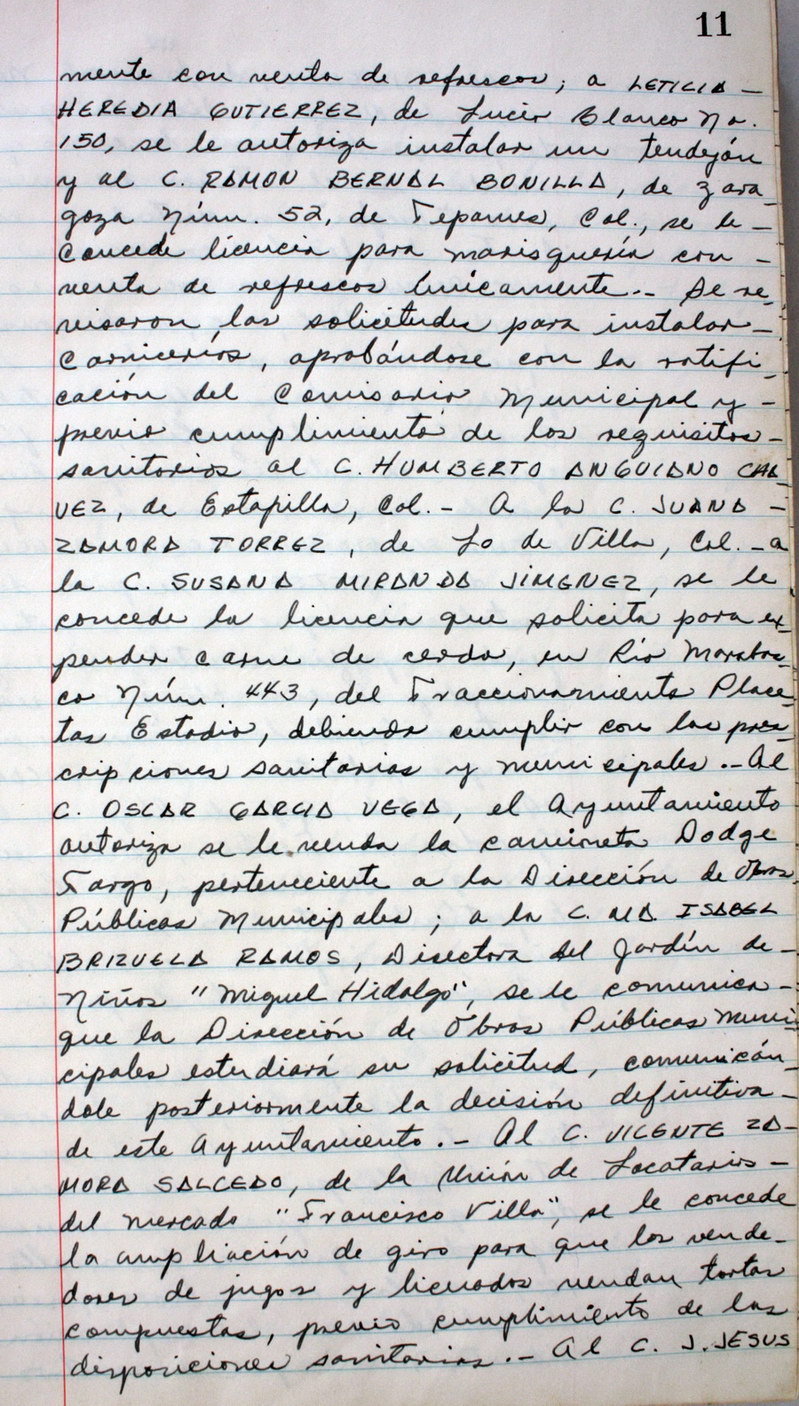 11
mente con venta de refrescos; a LETICIA -
HEREDIA GUTIERREZ, de Lucio Blanco No.
150, se le autoriza instalar un tendejón
y al C. RAMON BERNAL BONILLA, de Zara-
goza Núm. 52, de Tepames, Col., se le -
concede licencia para marisquería con -
venta de refrescos únicamente.- Se re-
visaron las solicitudes para instalar -
carnicerías, aprobándose con la ratifi-
cación del Comisario Municipal y -
previo cumplimiento de los requisitos -
sanitarios al C. HUMBERTO ANGUIANO CHA-
VEZ, de Estapilla, Col.- A la C. JUANA -
ZAMORA TORREZ, de Lo de Villa, Col. - a
la C. SUSANA MIRANDA JIMENEZ, se le
concede la licencia que solicita para ex-
pender carne de cerdo, en Río Marabas-
co Núm. 443, del Fraccionamiento Place-
tas Estadio, debiendo cumplir con las pres-
cripciones sanitarias y municipales.- Al
C. OSCAR GARCIA VEGA, el Ayuntamiento
autoriza se le venda la camioneta Dodge
Fargo, perteneciente a la Dirección de Obras
Públicas Municipales; a la C. MA. ISABEL
BRIZUELA RAMOS, Directora del Jardín de -
Niños "Miguel Hidalgo", se le comunica -
que la Dirección de Obras Públicas Muni-
cipales estudiará su solicitud, comunicán-
dole posteriormente la decisión definitiva -
de este Ayuntamiento.- Al C. VICENTE ZA-
MORA SALCEDO, de la Unión de Locatarios -
del mercado "Francisco Villa", se le concede
la ampliación de giro para que los vende-
dores de jugos y licuados vendan tortas
compuestas, previo cumplimiento de las
disposiciones sanitarias.- Al C. J. JESUS